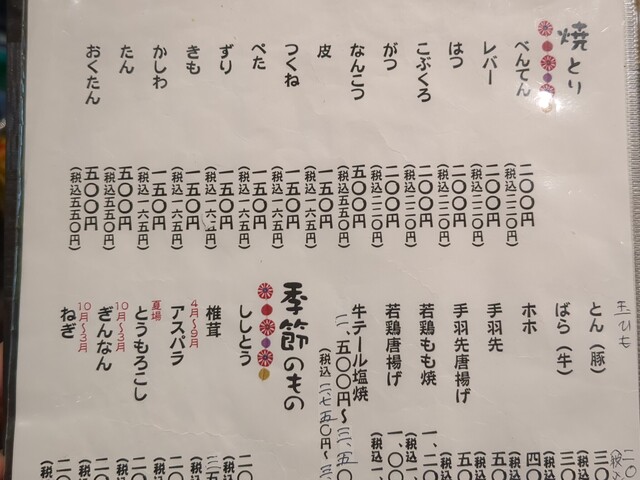 焼とり
べんてん 二〇〇円
(税込二二〇円)
レバー 二〇〇円
(税込二二〇円)
はつ 二〇〇円
(税込二二〇円)
こぶくろ 二〇〇円
(税込二二〇円)
がつ 二〇〇円
(税込二二〇円)
なんこつ 五〇〇円
(税込五五〇円)
皮 一五〇円
(税込一六五円)
つくね 一五〇円
(税込一六五円)
ぺた 一五〇円
(税込一六五円)
ずり 一五〇円
(税込一六五円)
きも 一五〇円
(税込一六五円)
かしわ 一五〇円
(税込一六五円)
たん 五〇〇円
(税込五五〇円)
おくたん 五〇〇円
(税込五五〇円)
玉ひも
とん(豚)
ばら(牛)
ホホ
手羽先
手羽先唐揚げ
若鶏もも焼
若鶏唐揚げ
牛テール塩焼
二、五〇〇円〜三、五〇
(税込 二七五〇円〜
季節のもの
ししとう
椎茸
4月〜9月
アスパラ
夏場
とうもろこし
10月〜3月
ぎんなん
10月〜3月
ねぎ